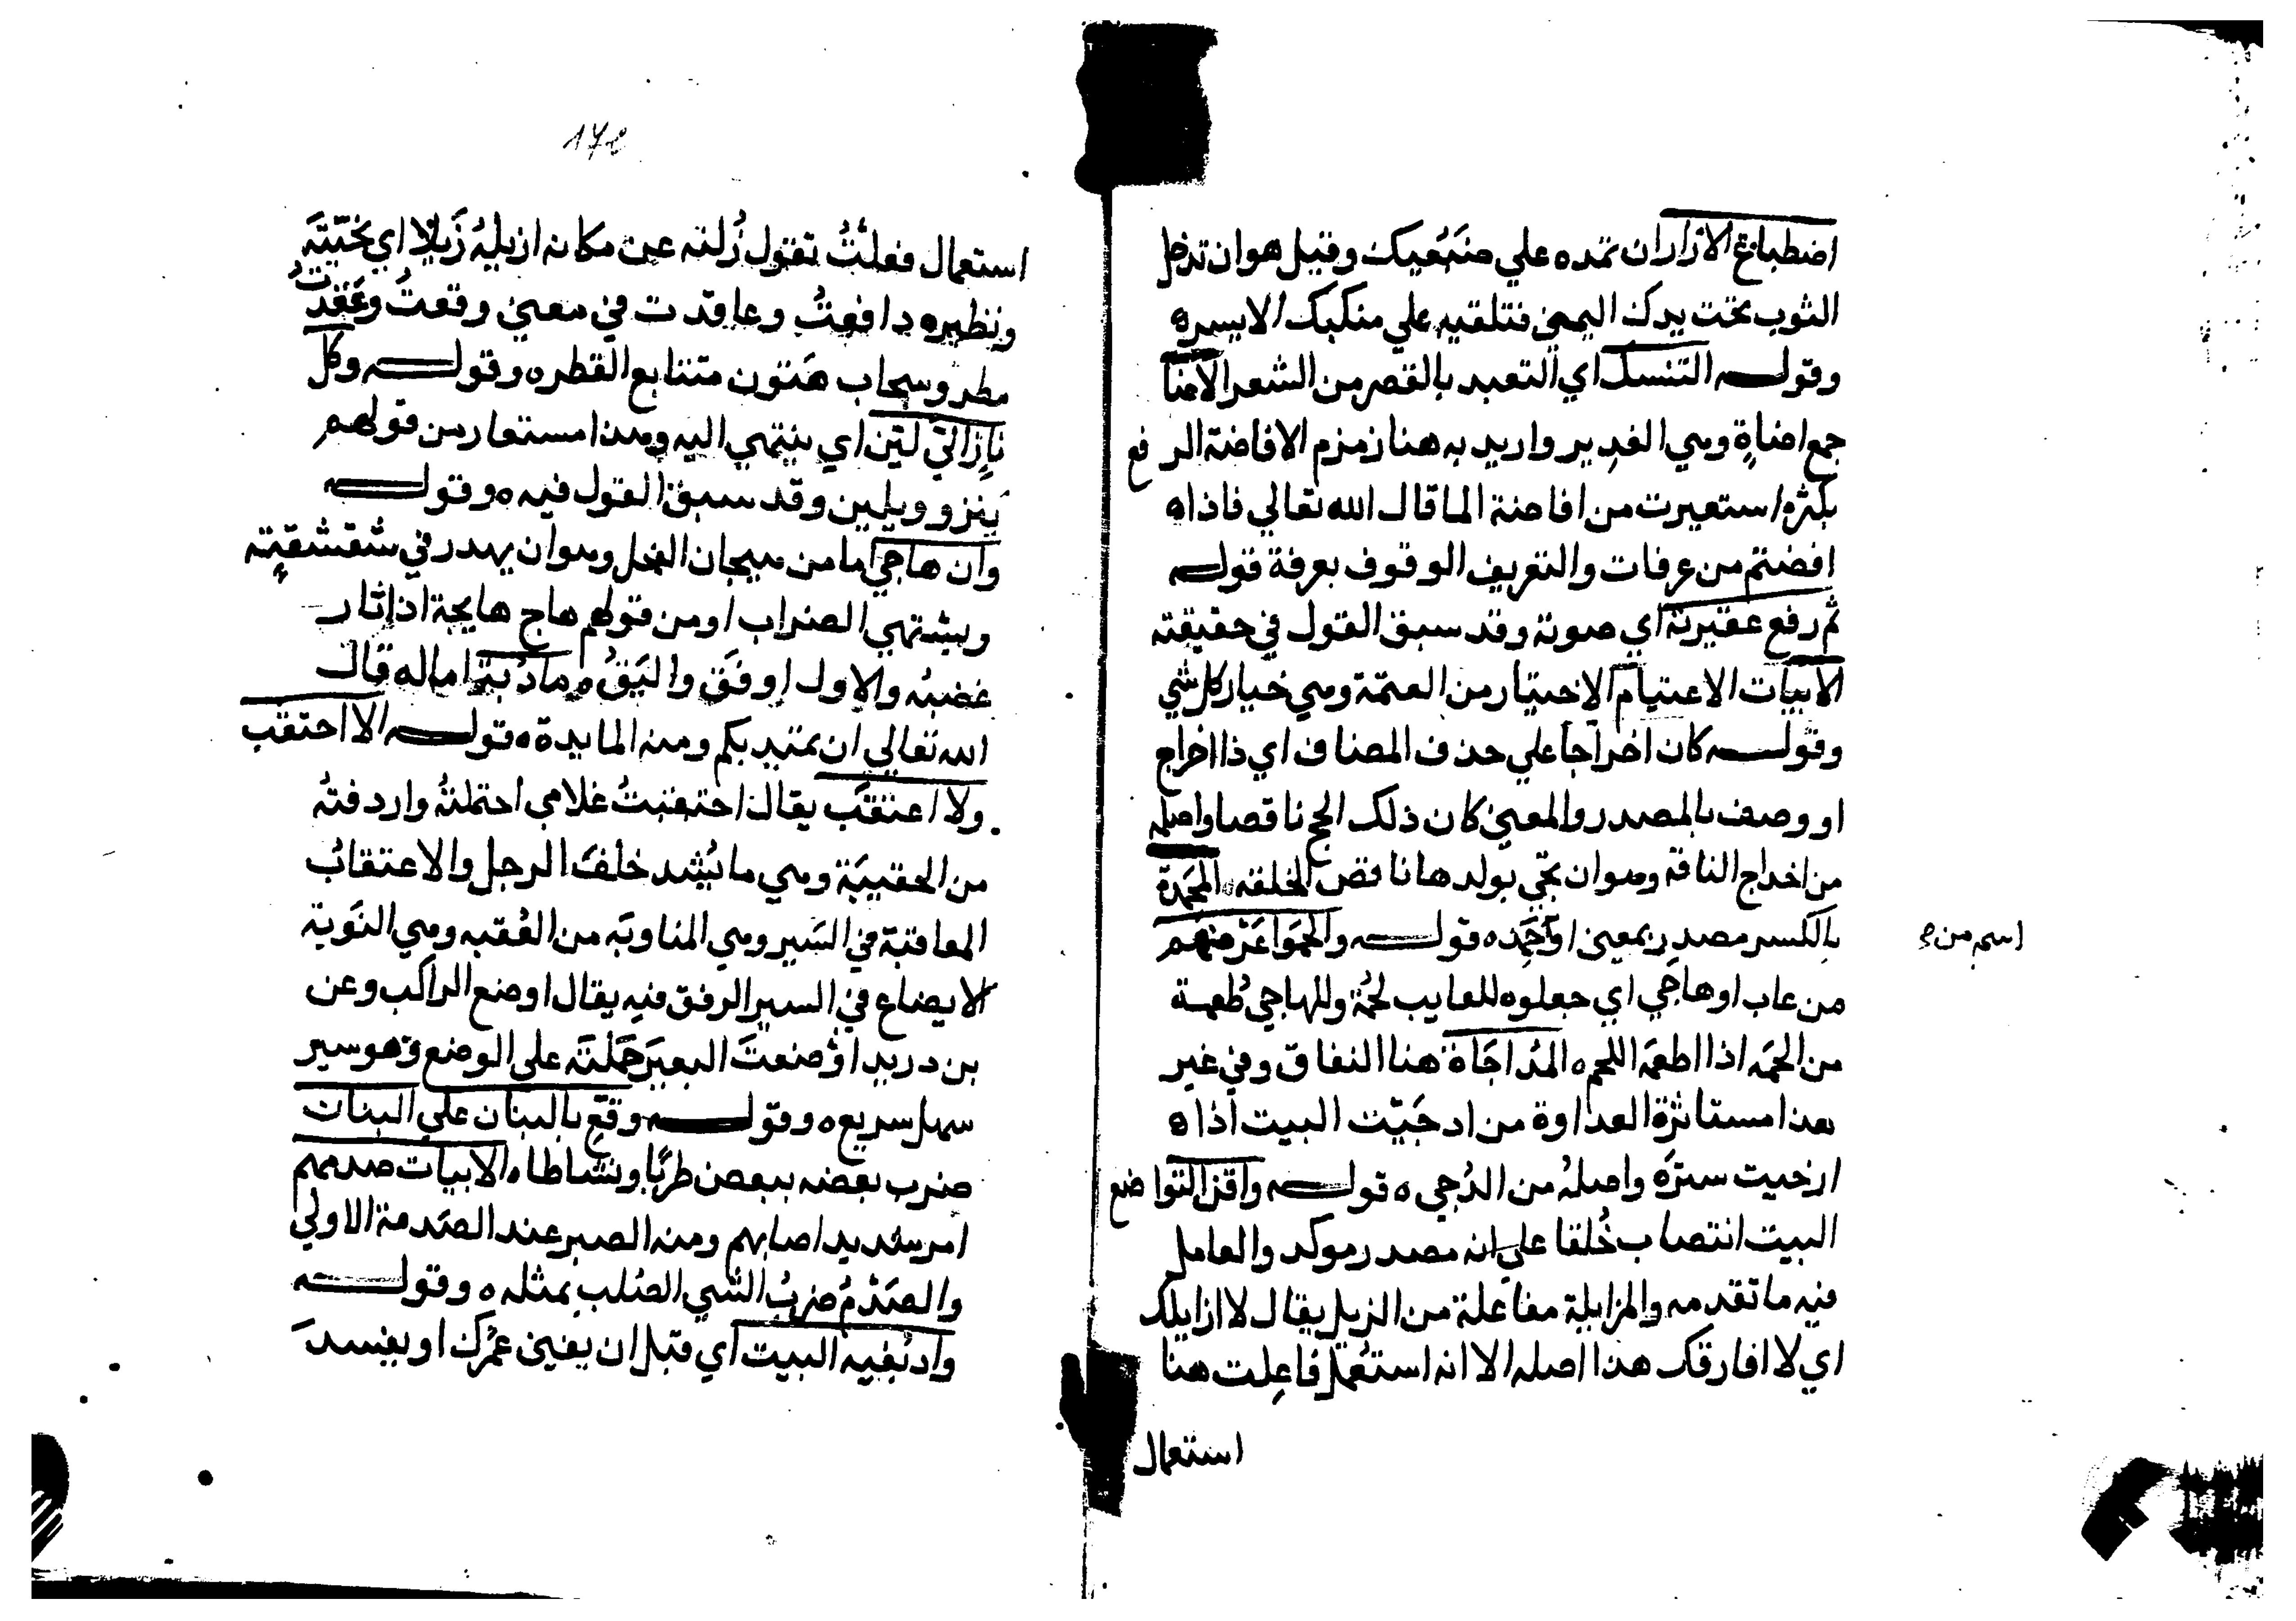 اضطباع الازار ان تمده علي ضبعيك وقيل هو ان تدخل
الثوب تحت يدك اليمني فتلقيه علي منكبك الايسره
وقوله التنسك اي التعبد بالقصر من الشعر الاضا
جمع اضاةٍ وهي الغدير واريد به هنا زمزم الافاضة الرفع
بكثره استعيرت من افاضة الما قال الله تعالي فاذاه
افضتم من عرفات والتعريف الوقوف بعرفة قوله
ثم رفع عقيرته اي صوته وقد سبق القول في حقيقته
الابيات الاعتيام الاختيار من العتمة وهي خيار كل شي
وقوله كان اخراجا علي حذف المضاف اي ذا اخراج
او وصف بالمصدر والمعني كان ذلك الحج ناقصا واصله
من اخداج الناقة وهو ان تجي بولدها ناقص الخلقه المجدة
بالكسر مصدر بمعني اوجده قوله والحموا عرضهم
اسم من
من عاب او هاجي اي جعلوه للعايب لحمة وللهاجي طعمة
من الحمه اذا اطعمه اللحم ه المداجاة هنا النفاق وفي غير
هذا مستاثرة العداوة من ادجيت البيت اذاه
ارخيت ستره واصله من الدجي ه قوله واقن التواضع
البيت انتصاب خُلقا علي انه مصدر موكد والعامل
فيه ما تقدمه والمزايلة مفاعلة من الزيل يقال لا ازايلك
اي لا افارقك هذا اصله الا انه استعمل فاعلت هنا
استعمال
استعمال فعلتُ تقول زُلته عن مكانه ازيله زَيلا اي نحيته
ونظيره دافعتُ وعاقدت في معني وقعتُ وعقدتُ
مطر وسحاب هَتون متتابع القطره وقوله وكل
نازالي لَين اي ينتهي اليه وهذا مستعار من قولهم
ينزو ويلين وقد سبق القول فيه ه وقوله
وان هاجي اما من هيجان الفحل وهو ان يهدر في شقشقته
ويشتهي الضراب او من قولهم هاج هايجة اذا ثار
غضبه والاول اوفَق واليَقُ ه مادبة اما له قال
الله تعالي ان تميد بكم ومنه المايدة ه قوله الا احتقب
ولا اعتقب يقال احتقبتُ غلامي احتملتهُ واردفته
من الحقيبة وهي ما يُشد خلف الرجل والاعتقاب
المعاقبة في السير وهي المناوبة من العُقبه وهي النَوبة
الايضاع في السير الرفق فيه يقال اوضع الراكب وعن
بن دريد اوضعتَ البعير حملته علي الوضع وهو سير
سهل سريع ه وقوله وقع بالبنان علي البنان
ضرب بعضه ببعض طربا ونشاطا ه الابيات صدمهم
امر شديد اصابهم ومنه الصبر عند الصدمة الاولي
والصَدْمُ ضربُ الشي الصُلب بمثله ه وقوله
وادنفيه البيت اي قبل ان يفني عمرك او يفسد